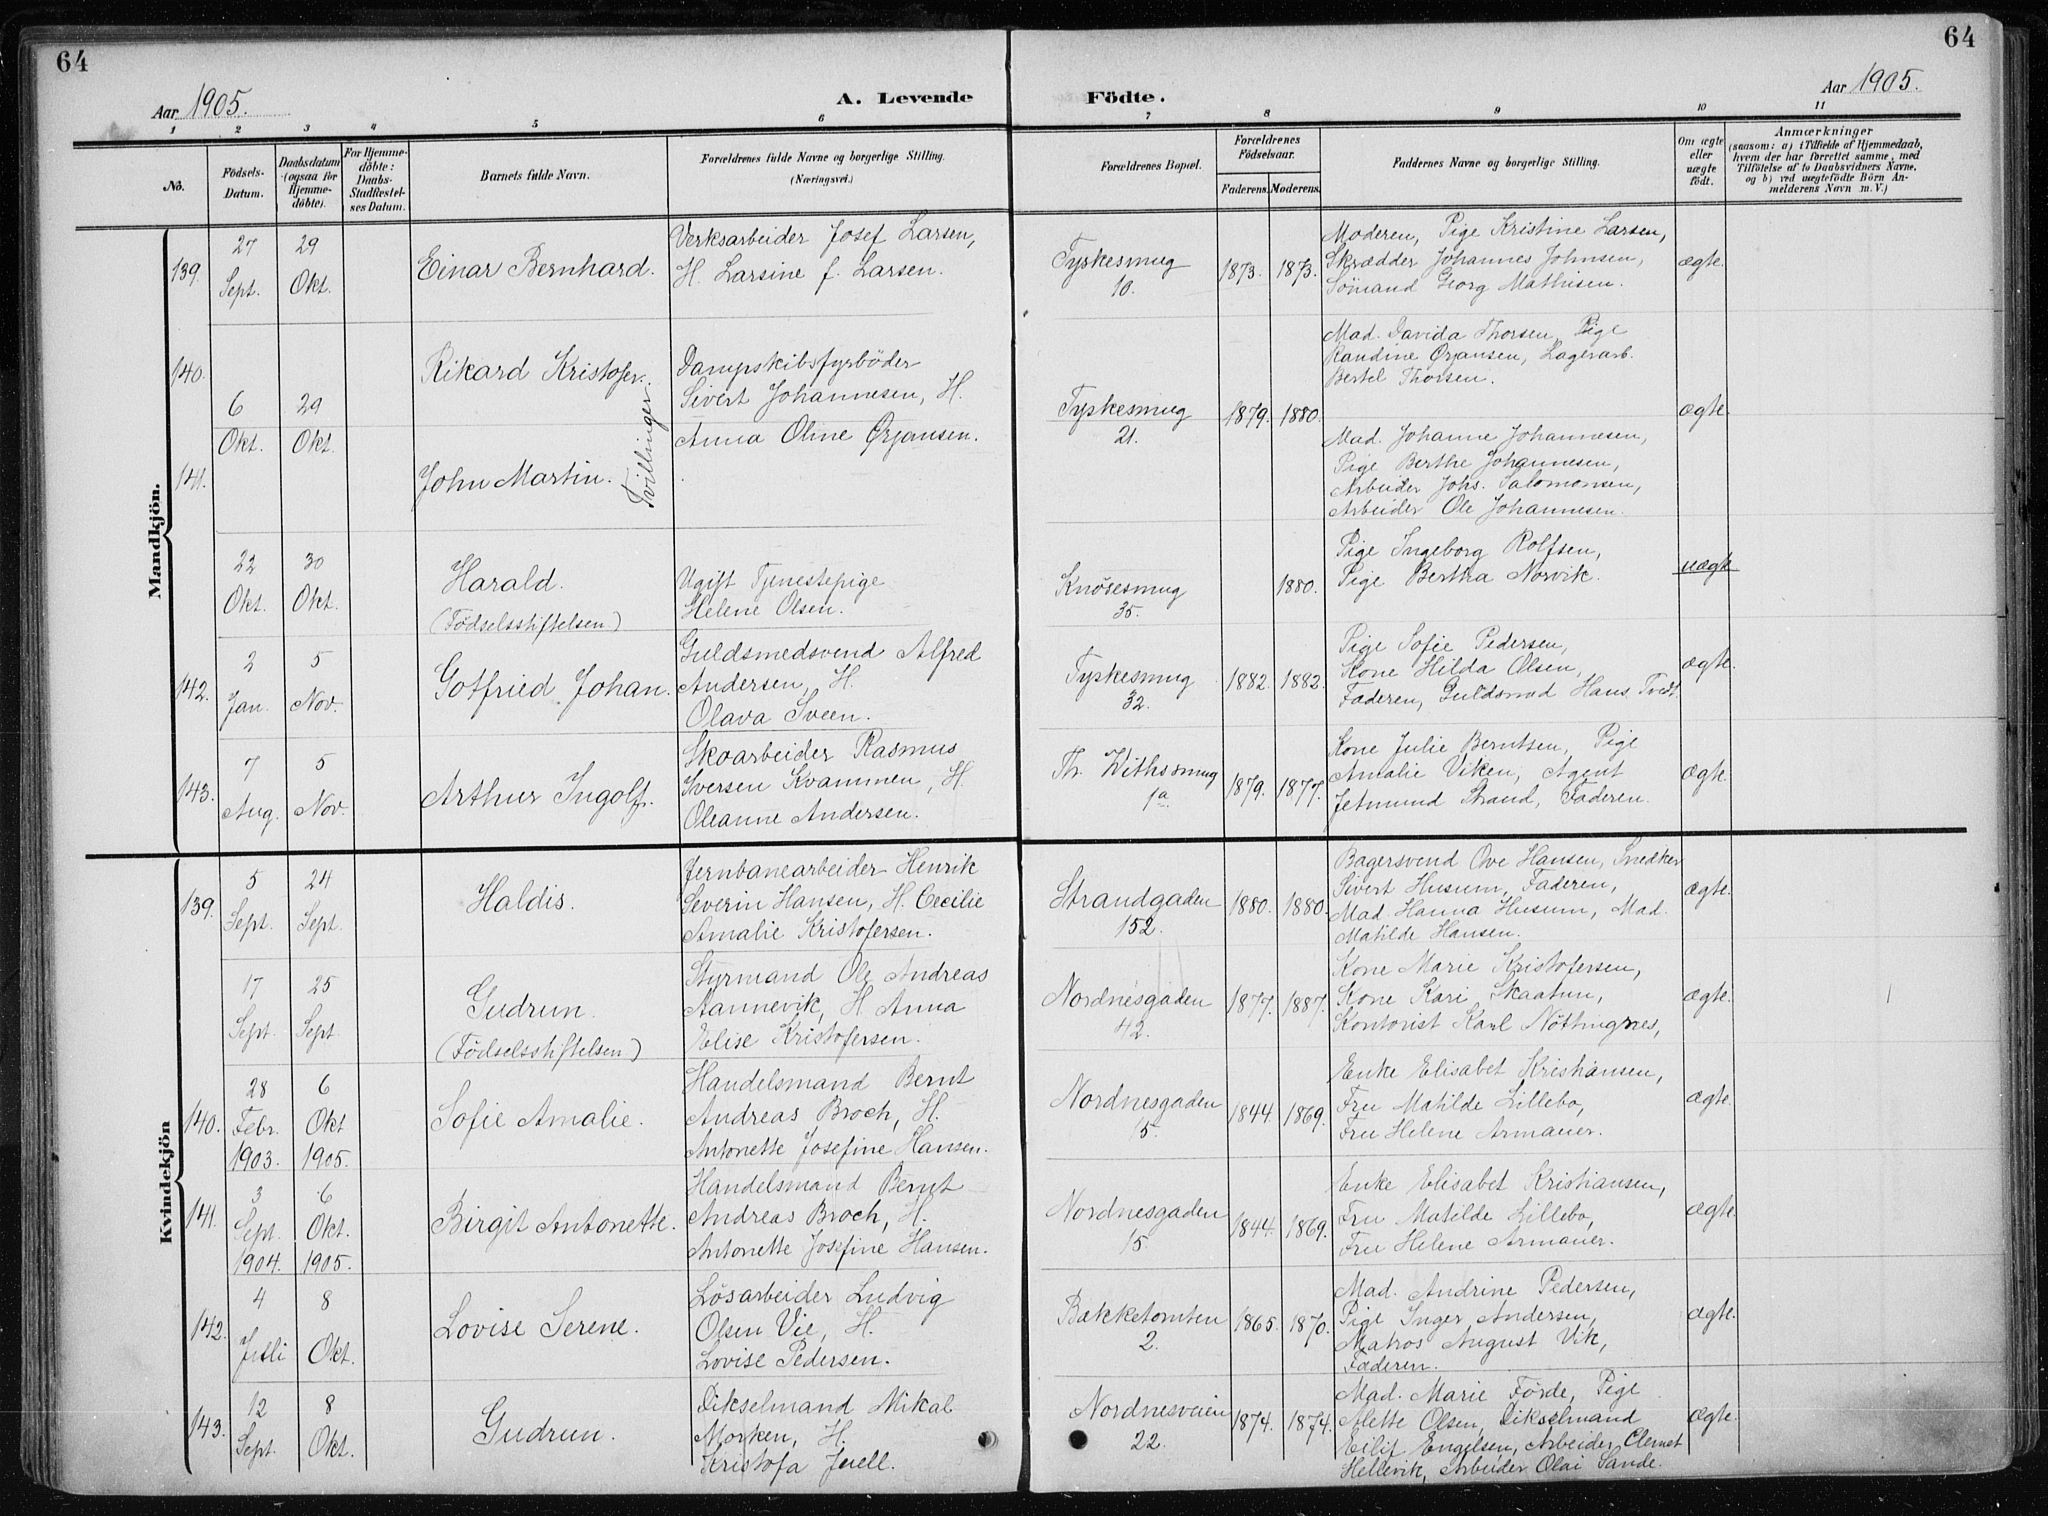 64
64
Aar 1905.
A. Levende
Födte.
Aar 1905.
1 2 3 4 5 6 7 8 9 10 11
No.
Födsels-Datum.
Daabsdatum (ogsaa for Hjemme-döbte).
For Hjemme-döbte: Daabs-Stadfæstel-ses Datum.
Barnets fulde Navn.
Forældrenes fulde Navne og borgerlige Stilling.
(Næringsvei.)
Forældrenes Bopæl.
Forældrenes Födselsaar.
Faderens. Moderens.
Faddernes Navne og borgerlige Stilling.
Om ægte eller uægte födt.
Anmærkninger
(saasom: a) i Tilfælde af Hjemmedaab, hvem der har forrettet samme, med Tilföielse af to Daabsvidners Navne, og b) ved uægtefödte Börn An-melderens Navn m. V.)
Mandkjön.
139.
27 Sept.
29 Okt.
Einar Bernhard.
Verksarbeider Josef Larsen,
H. Larsine f. Larsen.
Tyskesmug
10.
1873. 1873.
Moderen, Pige Kristine Larsen,
Skrædder Johannes Johnsen,
Sömand Georg Mathisen.
ægte.
140.
6 Okt.
29 Okt.
Rikard Kristofer.
Tvillinger
Dampskibsfyrböder
Sivert Johannesen, H.
Anna Oline Ørjansen.
Tyskesmug
21.
1879. 1880.
Mad. Davida Thorsen, Pige
Randine Ørjansen, Lagerarb.
Bertel Thorsen.
ægte
141.
John Martin.
Mad. Johanne Johannesen,
Pige Berthe Johannesen,
Arbeider Johs. Salomonsen,
Arbeider Ole Johannesen.
22 Okt.
30 Okt.
Harald.
(Födselsstiftelsen)
Ugift Tjenestepige
Helene Olsen.
Knösesmug
35.
1880.
Pige Ingeborg Rolfsen,
Pige Bertha Norvik.
uægte
142.
2 Jan.
5 Nov.
Gotfried Johan.
Guldsmedsvend Alfred
Andersen, H.
Olava Sveen.
Tyskesmug
32.
1882. 1882.
Pige Sofie Pedersen,
Kone Hilda Olsen,
Faderen, Guldsmed Hans Tvedt.
ægte.
143.
7 Aug.
5 Nov.
Arthur Ingolf.
Skoarbeider Rasmus
Iversen Kvammen, H.
Oleanne Andersen.
Th. Withsmug
1a.
1879. 1877.
Kone Julie Berntsen, Pige
Amalie Viken, Agent
Jetmund Strand, Faderen.
ægte.
Kvindekjön
139.
5 Sept.
24 Sept.
Haldis.
Jernbanearbeider Henrik
Severin Hansen, H. Cecilie
Amalie Kristofersen.
Strandgaden
152.
1880. 1880.
Bagersvend Ove Hansen, Snedker
Sivert Husum, Faderen,
Mad. Hanna Husum, Mad.
Matilde Hansen.
ægte.
17 Sept.
25 Sept.
Gudrun.
(Födselsstiftelsen)
Styrmand Ole Andreas
Aannevik, H. Anna
Elise Kristofersen.
Nordnesgaden
42.
1877. 1887.
Kone Marie Kristofersen,
Kone Kari Skaatun,
Kontorist Karl Nöttingnes,
ægte.
140.
28 Febr. 1903.
6 Okt 1905.
Sofie Amalie.
Handelsmand Bernt
Andreas Broch, H.
Antonette Josefine Hansen.
Nordnesgaden
15.
1844. 1869.
Enke Elisabet Kristiansen,
Fru Matilde Lillebo,
Fru Helene Armauer.
ægte.
141.
3 Sept. 1904.
6 Okt. 1905.
Birgit Antonette.
Handelsmand Bernt
Andreas Broch, H.
Antonette Josefine Hansen.
Nordnesgaden
15.
1844. 1869.
Enke Elisabet Kristiansen,
Fru Matilde Lillebo,
Fru Helene Armauer.
ægte.
142.
4 Juli
8 Okt.
Lovise Serene.
Lösarbeider Ludvig
Olsen Vie, H.
Lovise Pedersen.
Bakketomten
2.
1865. 1870.
Mad. Andrine Pedersen,
Pige Inger Andersen,
Matros August Vik,
Faderen.
ægte.
143.
12 Sept.
8 Okt.
Gudrun.
Dikselmand Mikal
Morken, H.
Kristofa Juell.
Nordnesveien
22.
1874. 1874.
Mad. Marie Förde, Pige
Alette Olsen, Dikselmand
Eilif Engelsen, Arbeider Clemet
Hellevik, Arbeider Olai Sande.
ægte.